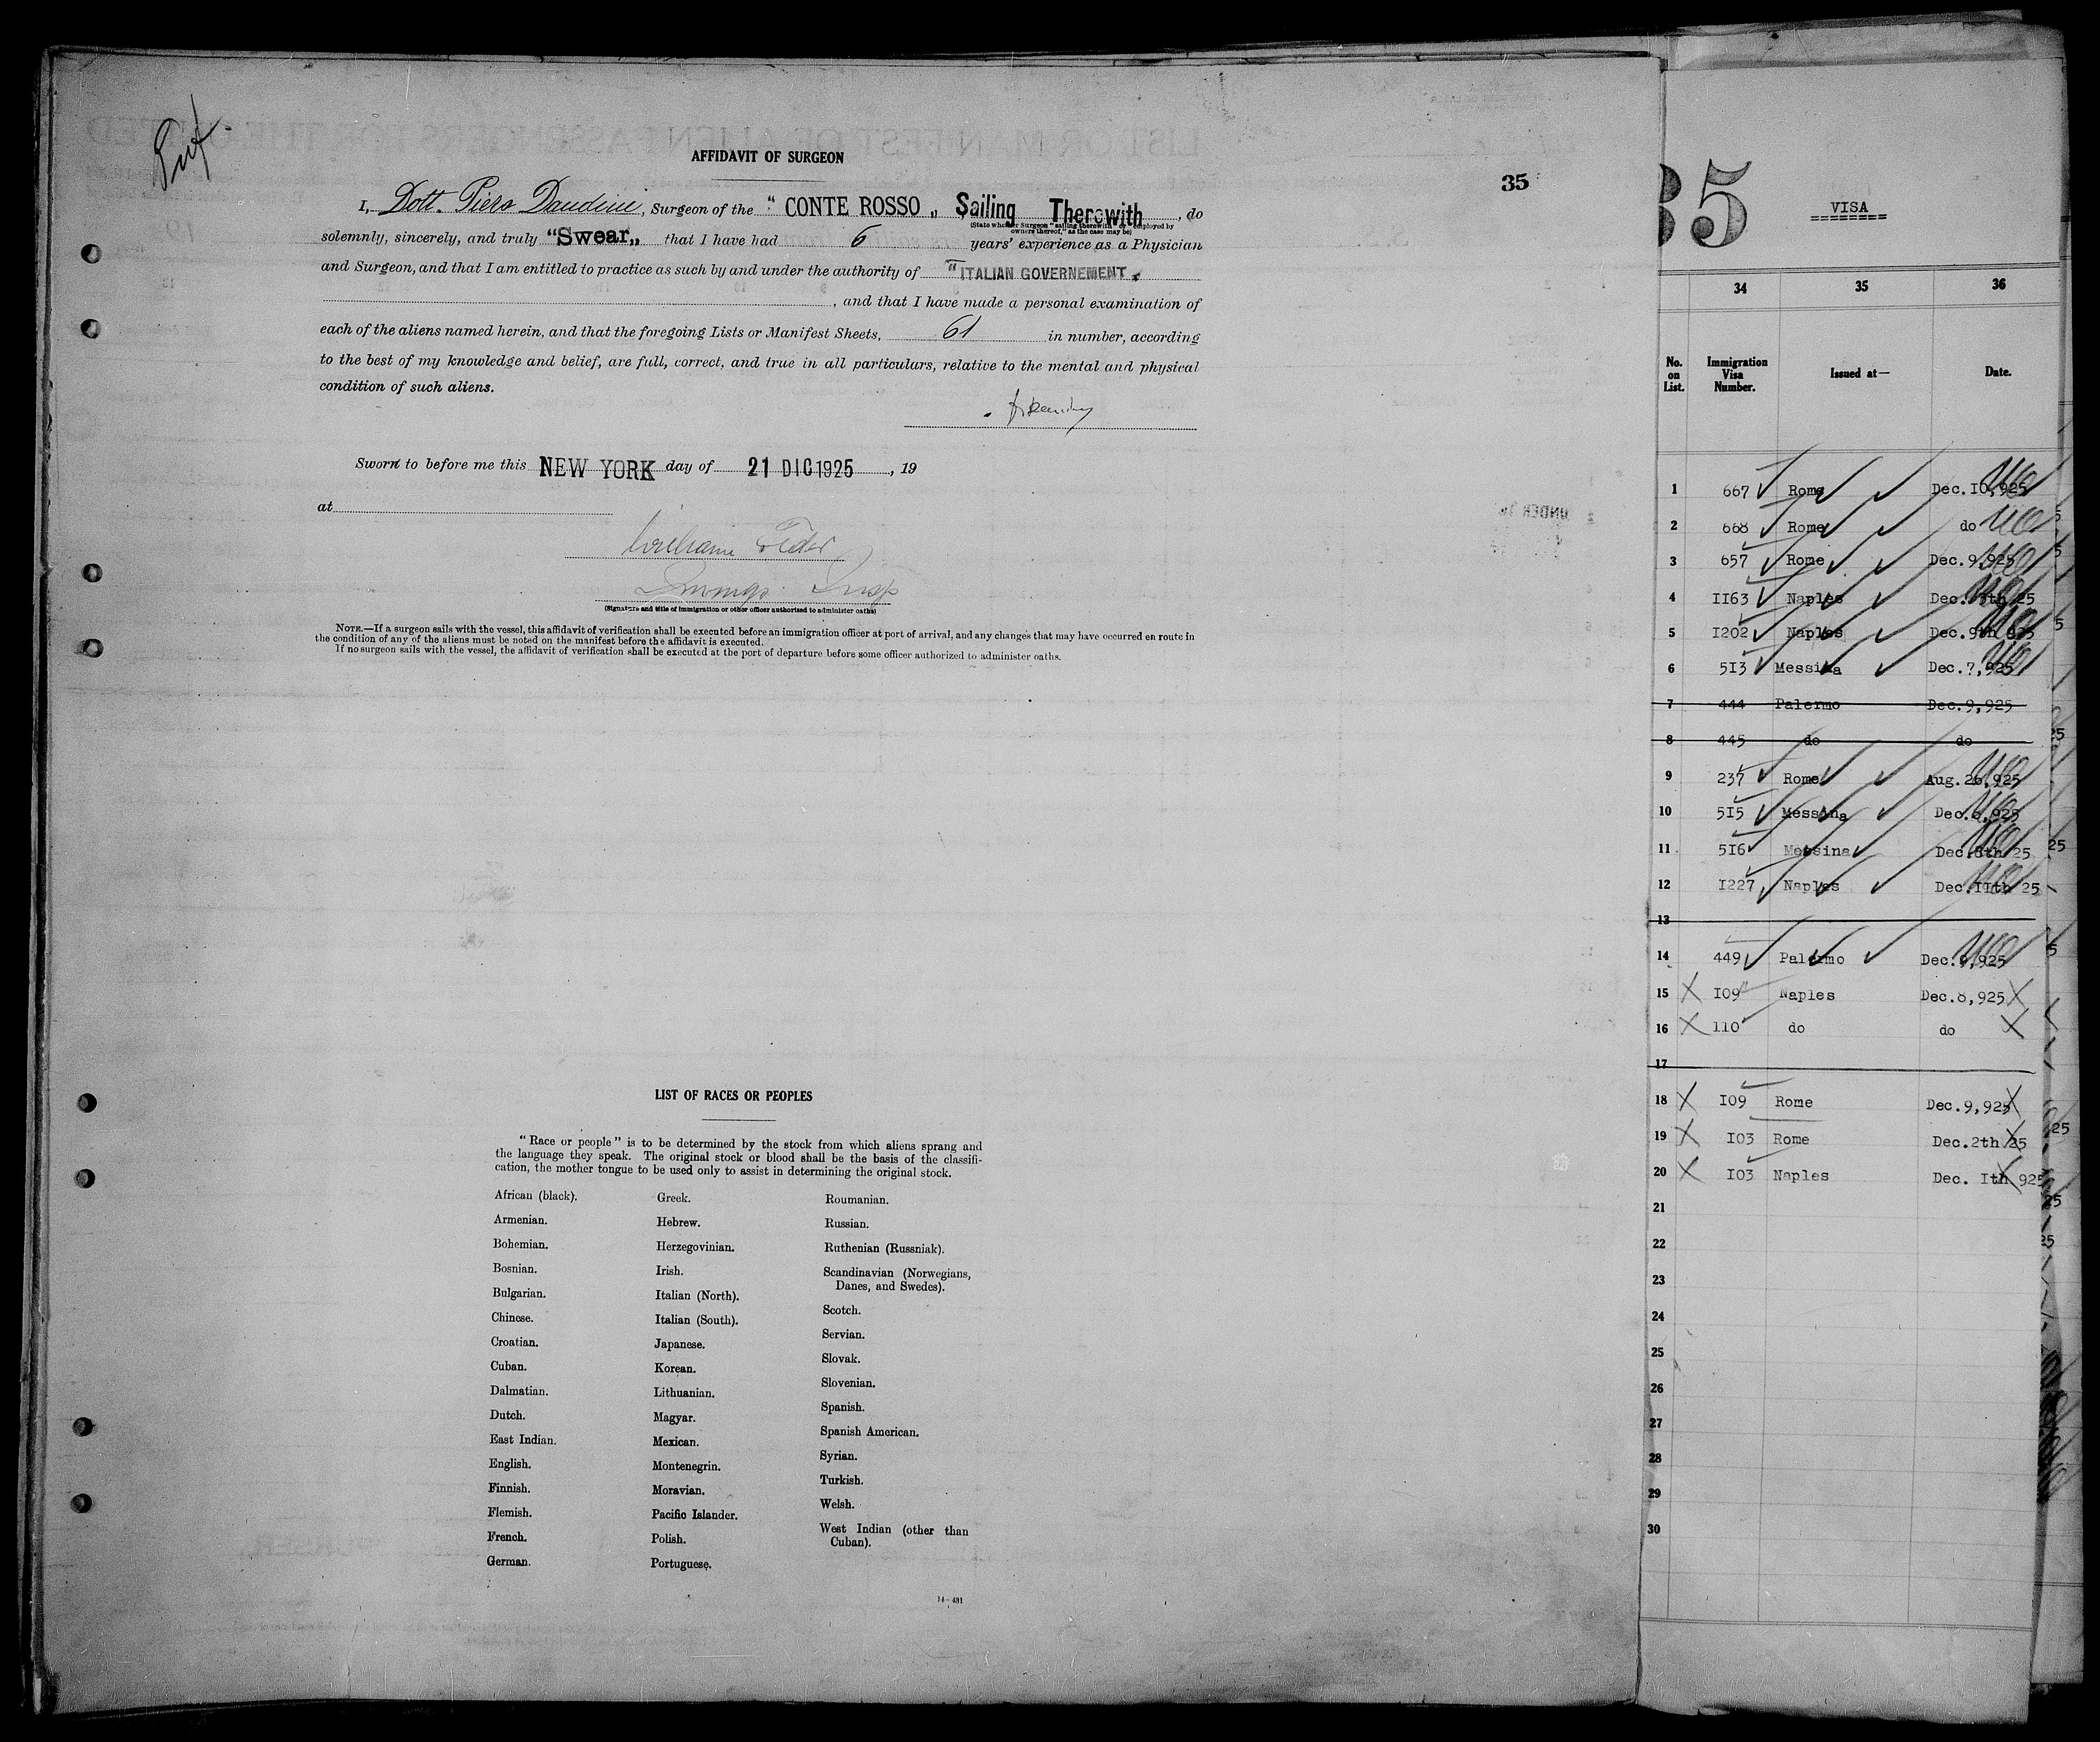 AFFIDAVIT OF SURGEON
35
I, Dott. Piero Dandini, Surgeon of the "CONTE ROSSO„ Sailing Therewith, do
(State whether Surgeon "sailing therewith" or "employed by
owners thereof," as the case may be)
solemnly, sincerely, and truly "Swear„ that I have had 6 years' experience as a Physician
and Surgeon, and that I am entitled to practice as such by and under the authority of "ITALIAN GOVERNEMENT„
, and that I have made a personal examination of
each of the aliens named herein, and that the foregoing Lists or Manifest Sheets, 61 in number, according
to the best of my knowledge and belief, are full, correct, and true in all particulars, relative to the mental and physical
condition of such aliens.
Sworn to before me this NEW YORK day of 21 DIC 1925, 19
at
(Signature and title of immigration or other officer authorized to administer oaths)
NOTE.—If a surgeon sails with the vessel, this affidavit of verification shall be executed before an immigration officer at port of arrival, and any changes that may have occurred en route in
the condition of any of the aliens must be noted on the manifest before the affidavit is executed.
If no surgeon sails with the vessel, the affidavit of verification shall be executed at the port of departure before some officer authorized to administer oaths.
LIST OF RACES OR PEOPLES
"Race or people" is to be determined by the stock from which aliens sprang and
the language they speak. The original stock or blood shall be the basis of the classifi-
cation, the mother tongue to be used only to assist in determining the original stock.
African (black).
Armenian.
Bohemian.
Bosnian.
Bulgarian.
Chinese.
Croatian.
Cuban.
Dalmatian.
Dutch.
East Indian.
English.
Finnish.
Flemish.
French.
German.
Greek.
Hebrew.
Herzegovinian.
Irish.
Italian (North).
Italian (South).
Japanese.
Korean.
Lithuanian.
Magyar.
Mexican.
Montenegrin.
Moravian.
Pacific Islander.
Polish.
Portuguese.
Roumanian.
Russian.
Ruthenian (Russniak).
Scandinavian (Norwegians,
Danes, and Swedes).
Scotch.
Servian.
Slovak.
Slovenian.
Spanish.
Spanish American.
Syrian.
Turkish.
Welsh.
West Indian (other than
Cuban).
14-481
35
VISA
34 35 36
No. on List. Immigration Visa Number. Issued at— Date.
1 667 Rome Dec.I0,925
2 668 Rome do
3 657 Rome Dec.9,925
4 II63 Naples Dec. 25
5 I202 Naples Dec.9th 925
6 5I3 Messina Dec.7,925
7 444 Palermo Dec.9,925
8 445 do do
9 237 Rome Aug.26,925
10 5I5 Messina Dec. ,925
11 5I6 Messina Dec.8th 25
12 I227 Naples Dec.IIth 25
13
14 449 Palermo Dec.9,925
15 I09 Naples Dec.8,925
16 110 do do
17
18 I09 Rome Dec.9,925
19 I03 Rome Dec.2th 25
20 I03 Naples Dec. Ith 925
21
22
23
24
25
26
27
28
29
30